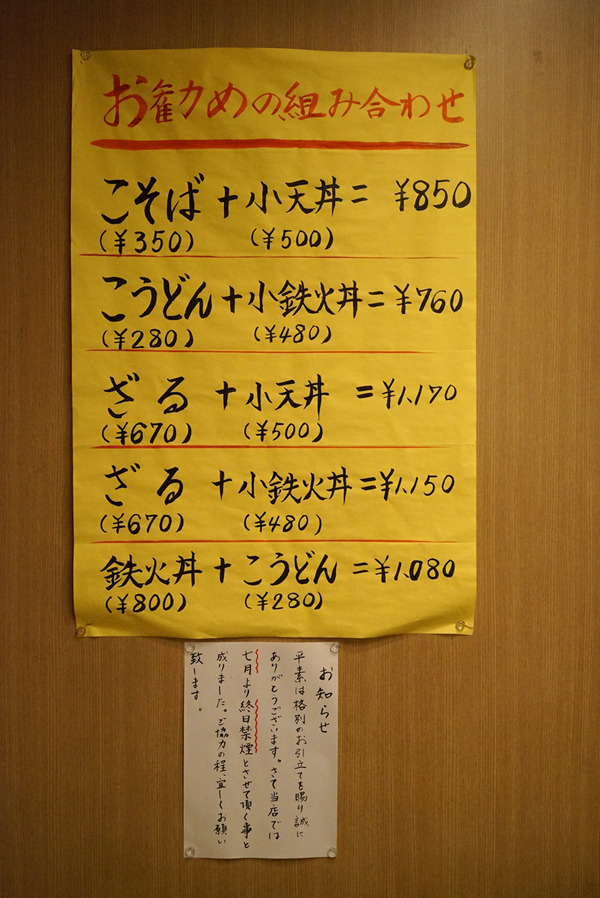 お勧めの組み合わせ
こそば+小天丼= ¥850
(¥350) (¥500)
こうどん+小鉄火丼=¥760
(¥280) (¥480)
ざる+小天丼 =¥1,170
(¥670) (¥500)
ざる+小鉄火丼=¥1,150
(¥670) (¥480)
鉄火丼+こうどん =¥1,080
(¥800) (¥280)
お知らせ
平素は格別のお引立てを賜り誠に
ありがとうございます。さて当店では
七月より終日禁煙とさせて頂く事と
成りました。ご協力の程、宜しくお願い
致します。